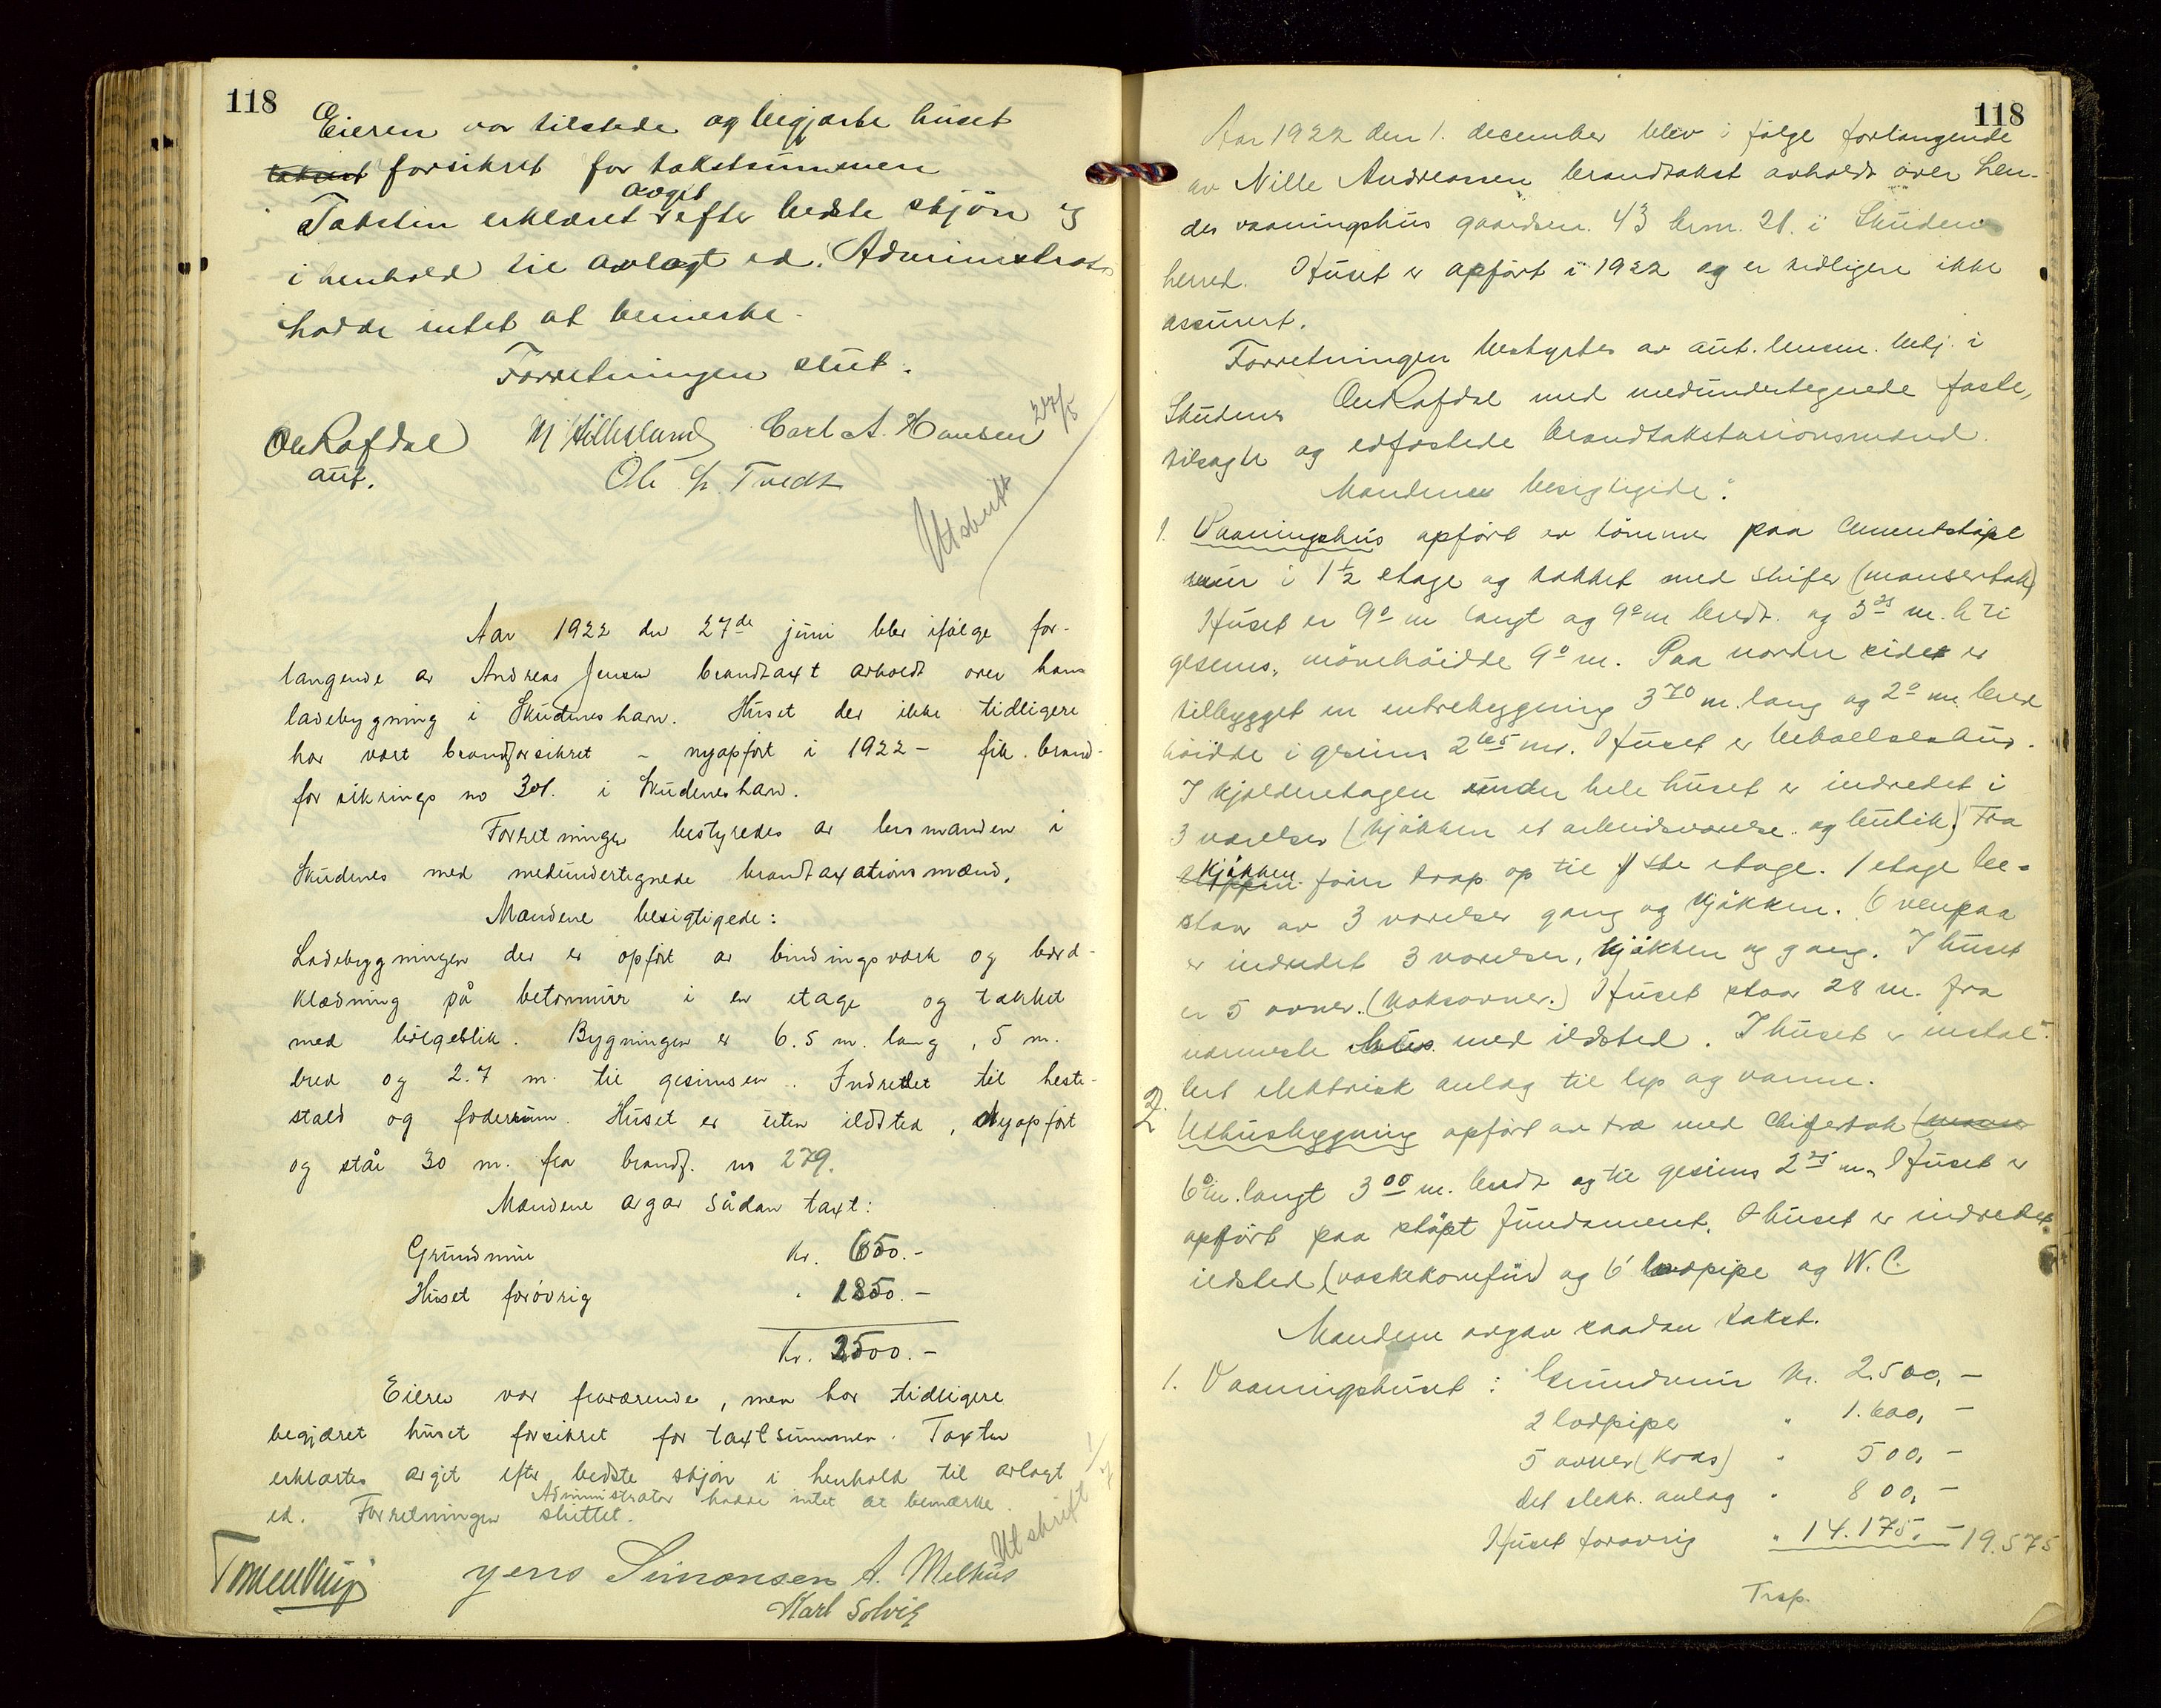 118
Eieren var tilstede og begjærte huset
takset forsikret for takstsummen
avgit
Taksten erklæret efter bedste skjön og
i henhold til avlagt ed. Administrator
hadde intet at bemerke.
Forretningen slut.
Ole Rafdal M Hillesland Carl A. Hansen
aut. Ole Tvedt
27/5
Utskrift
Aar 1922 den 27de juni blev ifølge for-
langende av Andreas Jensen brandtaxt avholdt over hans
ladebygning i Skudeneshavn. Huset der ikke tidligere
har vært brandforsikret - nyopført i 1922 - fik brand-
forsikrings no 301. i Skudeneshavn.
Forretningen bestyredes av lensmanden i
Skudenes med medundertegnede brandtaxationsmænd.
Mændene besigtigede:
Ladebygningen der er opført av bindingsværk og bord-
klædning på betonmur i en etage og tækket
med bölgeblik. Bygningen er 6.5 m. lang, 5 m.
bred og 2.7 m. til gesimsen. Indredet til heste-
stald og foderrum. Huset er uten ildsted, nyopført
og står 30 m. fra brandf. no 279.
Mændene avgav sådan taxt:
Grundmur kr. 650.-
Huset forövrig " 1850.-
Kr. 2500.-
Eieren var fraværende, men har tidligere
begjæret huset forsikret for taxtsummen. Taxten
erklærtes avgit efter bedste skjön i henhold til avlagt
Administrator hadde intet at bemærke.
ed. Forretningen sluttet.
Utskrift
Jens Simonsen A. Melhus
Karl Solvig
118
Aar 1922 den 1. december blev i følge forlangende
av Nille Andreassen brandtakst avholdt over hen-
des vaaningshus gaardsn. 43 brn. 21. i Skudenes
herred. Huset er opført i 1922 og er tidligere ikke
assurert.
Forretningen bestyrtes av aut. lensm. betj. i
Skudenes Ole Rafdal med medundertegnede faste,
tilsagte og edfæstede brandtakstasionsmænd.
Mændene besigtigede:
1. Vaaningshus opført av tömmer paa cementstöpt
mur i 1½ etage og tækket med skifer (mansertak)
Huset er 9 0 m langt og 9 0 m bredt og 3 25 m. h ti
gesems, mönehöidde 9 0 m. Paa nordre side er
tilbygget en entrebygning 3 70 m. lang og 2 0 m. bred
höidde i gesims 2 65 m. Huset er beboelseshus.
I kjelderetagen under hele huset er indredet i
3 værelser (kjökken et arbeidsværelse og butik) Fra
kjökken förer trap op til 1ste etage. 1 etage be-
staar av 3 værelser gang og kjökken. Ovenpaa
er indredet 3 værelser, kjökken og gang. I huset
er 5 ovner. (koksovner.) Huset staar 28 m. fra
nærmeste hus med ildsted. I huset er instal-
lert elektrisk anlæg til lys og varme.
2. Uthusbygning opført av træ med skifertak (manser
6 0 m. langt 3 00 m. bredt og til gesims 2 25 m. Huset er
opført paa støpt fundament. I huset er indredet
ildsted (vaskekomfür) og 6' lodpipe og W.C.
Mændene avgav saadan takst.
1. Vaaningshuset: Grundmur kr. 2.500,-
2 lodpiper " 1.600,-
5 ovner (koks) " 500,-
det elektr. anlæg " 800,-
Huset forøvrig " 14.175,- 19.575
Trsp.